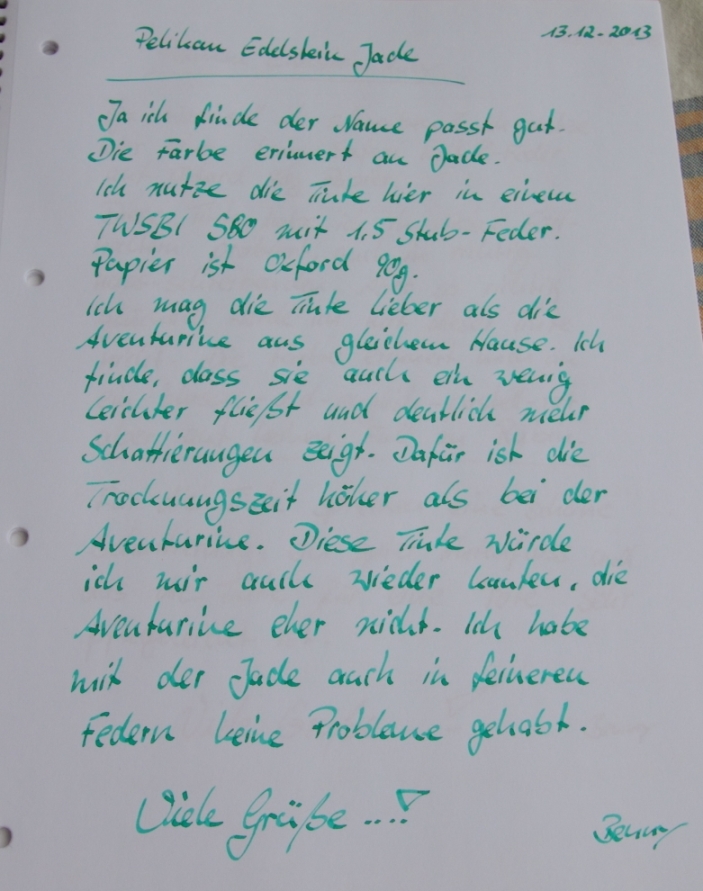 Pelikan Edelstein Jade
13.12.2013
Ja ich finde der Name passt gut.
Die Farbe erinnert an Jade.
Ich nutze die Tinte hier in einem
TWSBI 580 mit 1.5 Stub-Feder.
Papier ist Oxford 90g.
Ich mag die Tinte lieber als die
Aventurine aus gleichem Hause. Ich
finde, dass sie auch ein wenig
leichter fließt und deutlich mehr
Schattierungen zeigt. Dafür ist die
Trocknungszeit höher als bei der
Aventurine. Diese Tinte würde
ich mir auch wieder kaufen, die
Aventurine eher nicht. Ich habe
mit der Jade auch in feineren
Federn keine Probleme gehabt.
Viele Grüße ...!
Benny